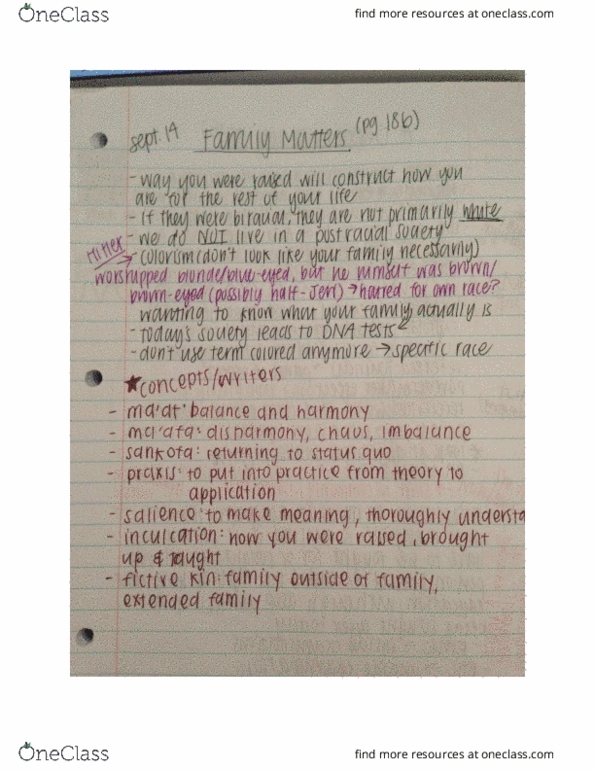 OneClass
find more resources at oneclass.com
sept. 14 Family Matters (pg. 186)
- way you were raised will construct how you
are for the rest of your life
- if they were biracial, they are not primarily white
- we do NOT live in a postracial society
Hitler
- colorism (don't look like your family necessarily)
worshipped blonde/blue-eyed, but he himself was brown/
brown-eyed (possibly half-Jew) → hatred for own race?
wanting to know what your family actually is
- Today's society leads to DNA tests
- don't use term colored anymore → specific race
★concepts/writers
- ma'at: balance and harmony
- ma'afa: disharmony, chaos, imbalance
- sankofa: returning to status quo
- praxis: to put into practice from theory to
application
- salience: to make meaning, thoroughly understa
- inculcation: how you were raised, brought
up & taught
- fictive kin: family outside of family,
extended family
OneClass
find more resources at oneclass.com